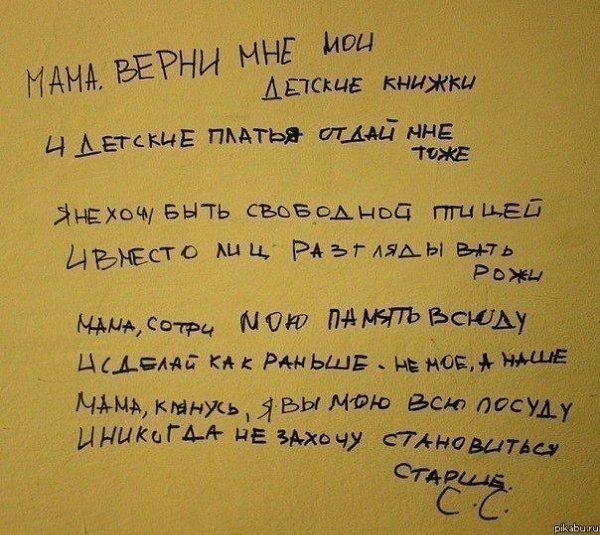 МАМА. ВЕРНИ МНЕ МОИ
ДЕТСКИЕ КНИЖКИ
И ДЕТСКИЕ ПЛАТЬЯ ОТДАЙ МНЕ
ТОЖЕ
Я НЕ ХОЧУ БЫТЬ СВОБОДНОЙ ПТИЦЕЙ
И ВМЕСТО ЛИЦ РАЗГЛЯДЫВАТЬ
РОЖИ
МАМА, СОТРИ МОЮ ПАМЯТЬ ВСЮДУ
И СДЕЛАЙ КАК РАНЬШЕ - НЕ МОЕ, А НАШЕ
МАМА, КЛЯНУСЬ, Я ВЫМОЮ ВСЮ ПОСУДУ
И НИКОГДА НЕ ЗАХОЧУ СТАНОВИТЬСЯ
СТАРШЕ.
С.С.
pikabu.ru